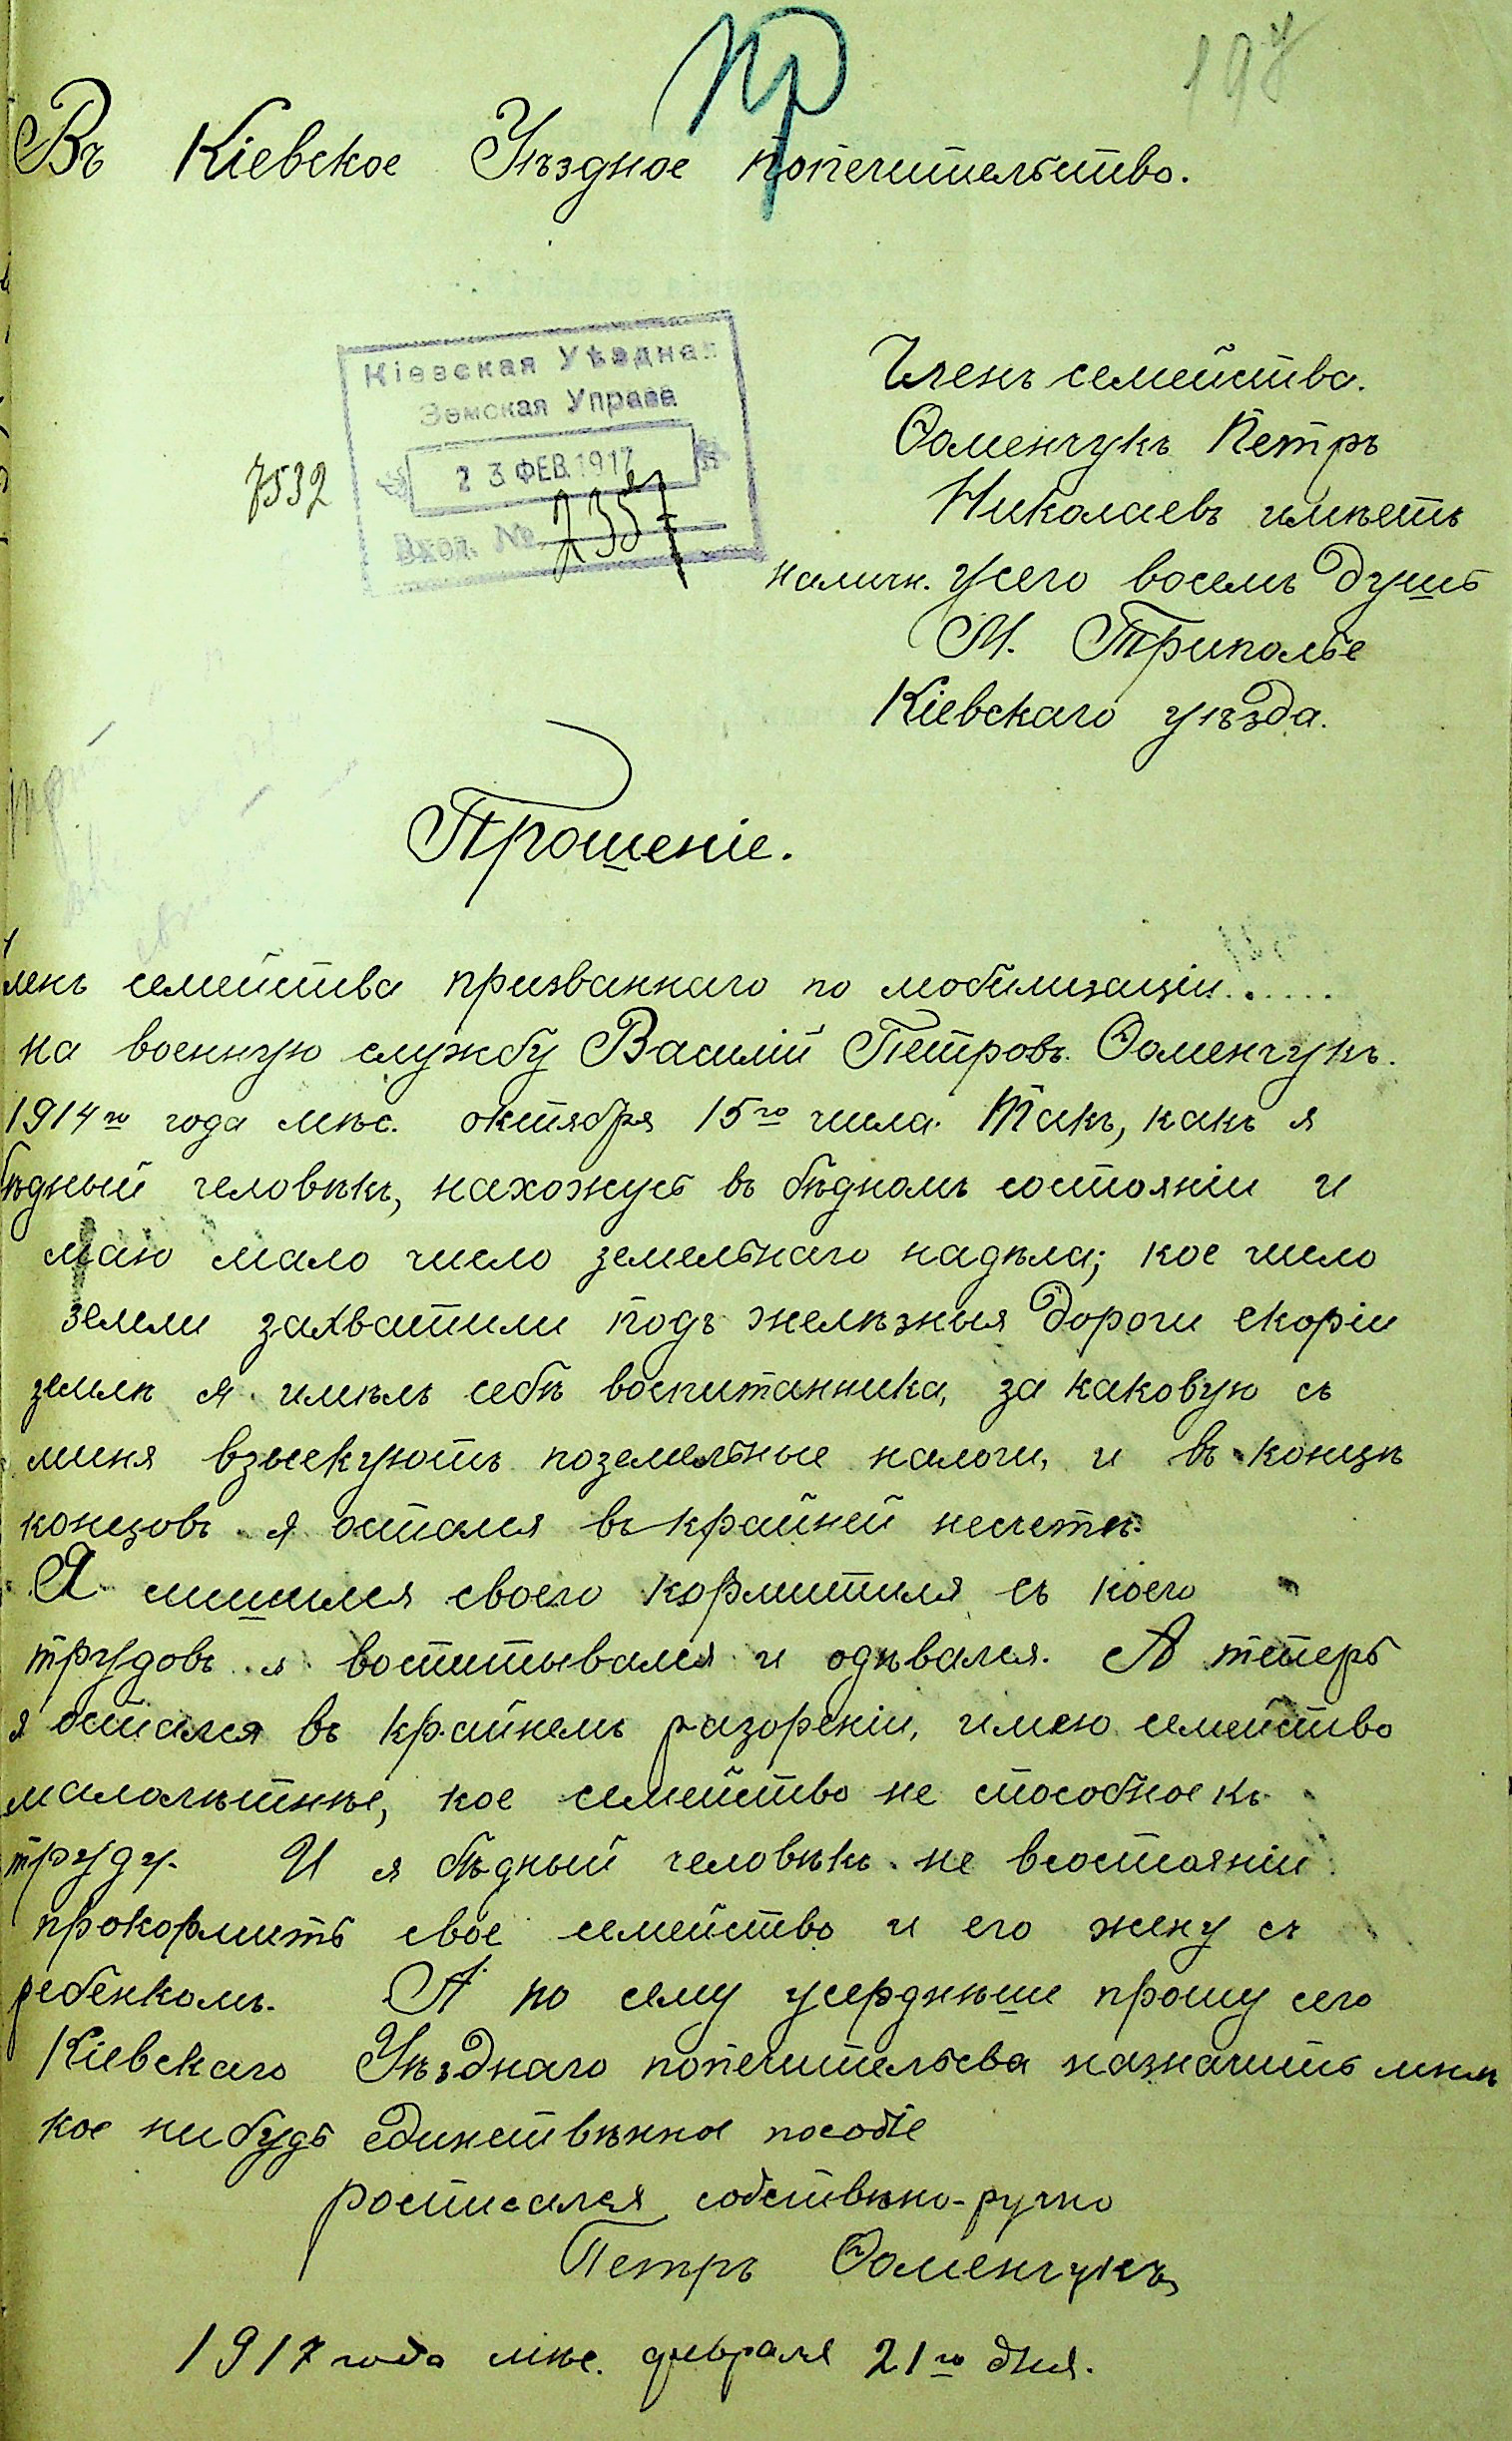 Пр
197
Въ Кіевское Уѣздное попечительство.
Кіевская Уѣздная
Земская Управа
23 ФЕВ. 1917
Вход. № 2357
7532
Членъ семейства.
Ѳоменчукъ Петръ
Николаевъ имѣетъ
наличн. усего восемъ душъ
М. Триполье
Кіевскаго уѣзда.
Прошеніе.
Членъ семейства призваннаго по мобилизаціи......
на военную службу Василій Петровъ Ѳоменчукъ.
1914го года мѣс. октября 15го числа. Такъ, какъ я
бѣдный человѣкъ, нахожусь въ бѣдномъ состояніи и
маю мало число земельнаго надѣла; кое число
земли захватили подъ желѣзныя дороги скоріи
землѣ я имѣлъ себѣ воспитанника, за каковую съ
миня взыскуютъ поземельные налоги, и въ концѣ
концовъ я остался въ крайней несчетѣ.
Я лишился своего кормитиля съ коего
трудовъ я воспитывался и одѣвался. А теперь
я остался въ крайнемъ разореніи, имею семейство
малолѣтнѣе, кое семейство не способное къ
труду. И я бѣдный человѣкъ не всостояніи
прокормить своё семейство и его жену съ
ребёнкомъ. А по сему усерднѣше прошу сего
Кіевскаго Уѣзднаго попечительсва назначить мнѣ
кое нибудь единствѣнное пособіе
росписался собствѣно-ручно
Петръ Ѳоменчукъ
1917 года мѣс. февраля 21го дня.